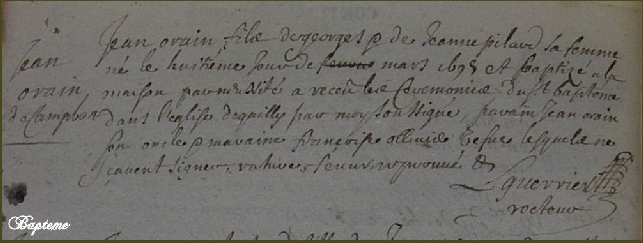 Jean
orain
de Campbon
Jean orain fils de georges & de Jeanne pilard sa femme
né le huitiême jour de mars 1695 et baptizé a la
maison par nécésité a receu les ceremonies du st bapteme
dans l'eglise de quilly par moy soussigné, parain Jean orain
son oncle & maraine françoise lesquels ne
sçavent signer,
Guerrier
recteur
Bapteme